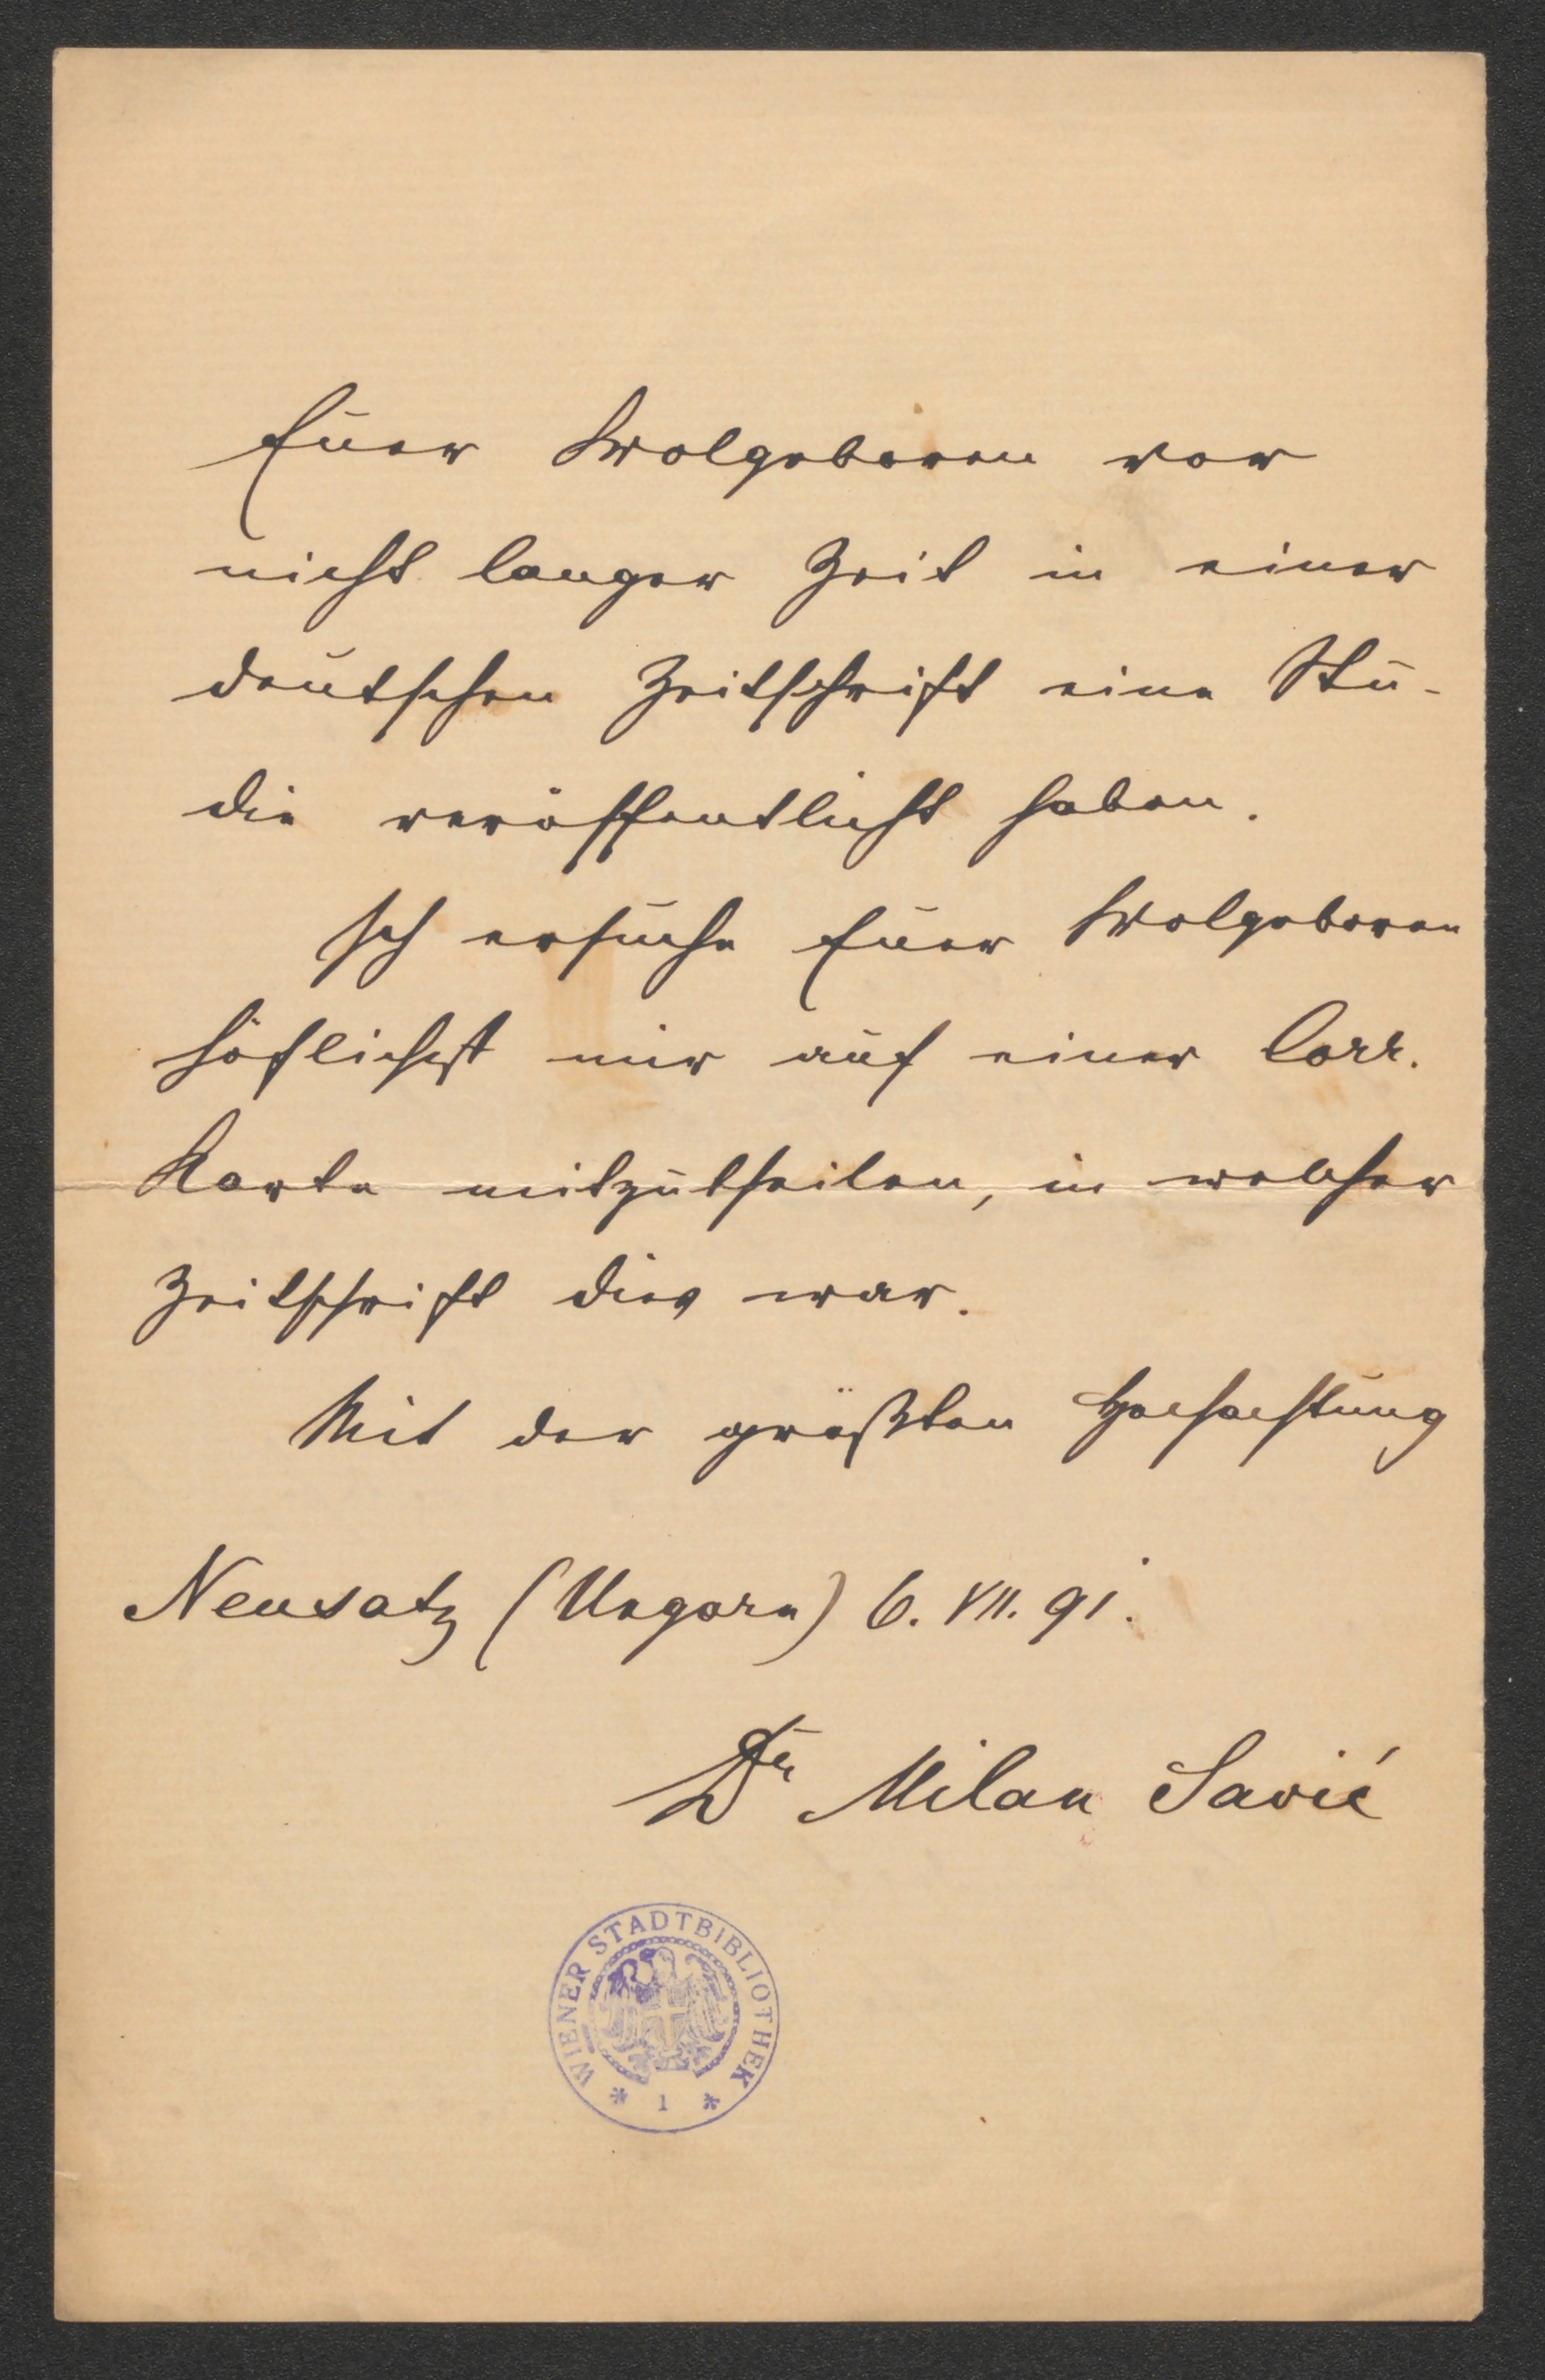 Euer Wolgeboren vor
nicht langer Zeit in einer
deutschen Zeitschrift eine Stu-
die veröffentlicht haben.
Ich ersuche Euer Wolgeboren
höflichst mir auf einer Corr.
Karte mitzutheilen, in welcher
Zeitschrift dies war.
Mit der größten Hochachtung
Neusatz (Ungarn) 6. VII. 91.
Dr Milan Savić
WIENER STADTBIBLIOTHEK
* 1 *